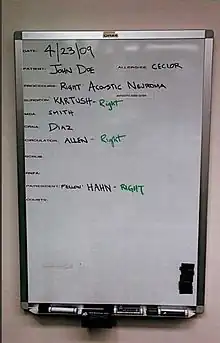 DATE: 4/23/09
PATIENT: JOHN DOE ALLERGIES: CECLOR
PROCEDURE: RIGHT ACOUSTIC NEUROMA
SURGEON: KARTUSH - Right
MDA: SMITH
CRNA: DIAZ
CIRCULATION: ALLEN - Right
SCRUB:
RNFA:
PA/RESIDENT: FELLOW: HAHN - RIGHT
COUNTS: